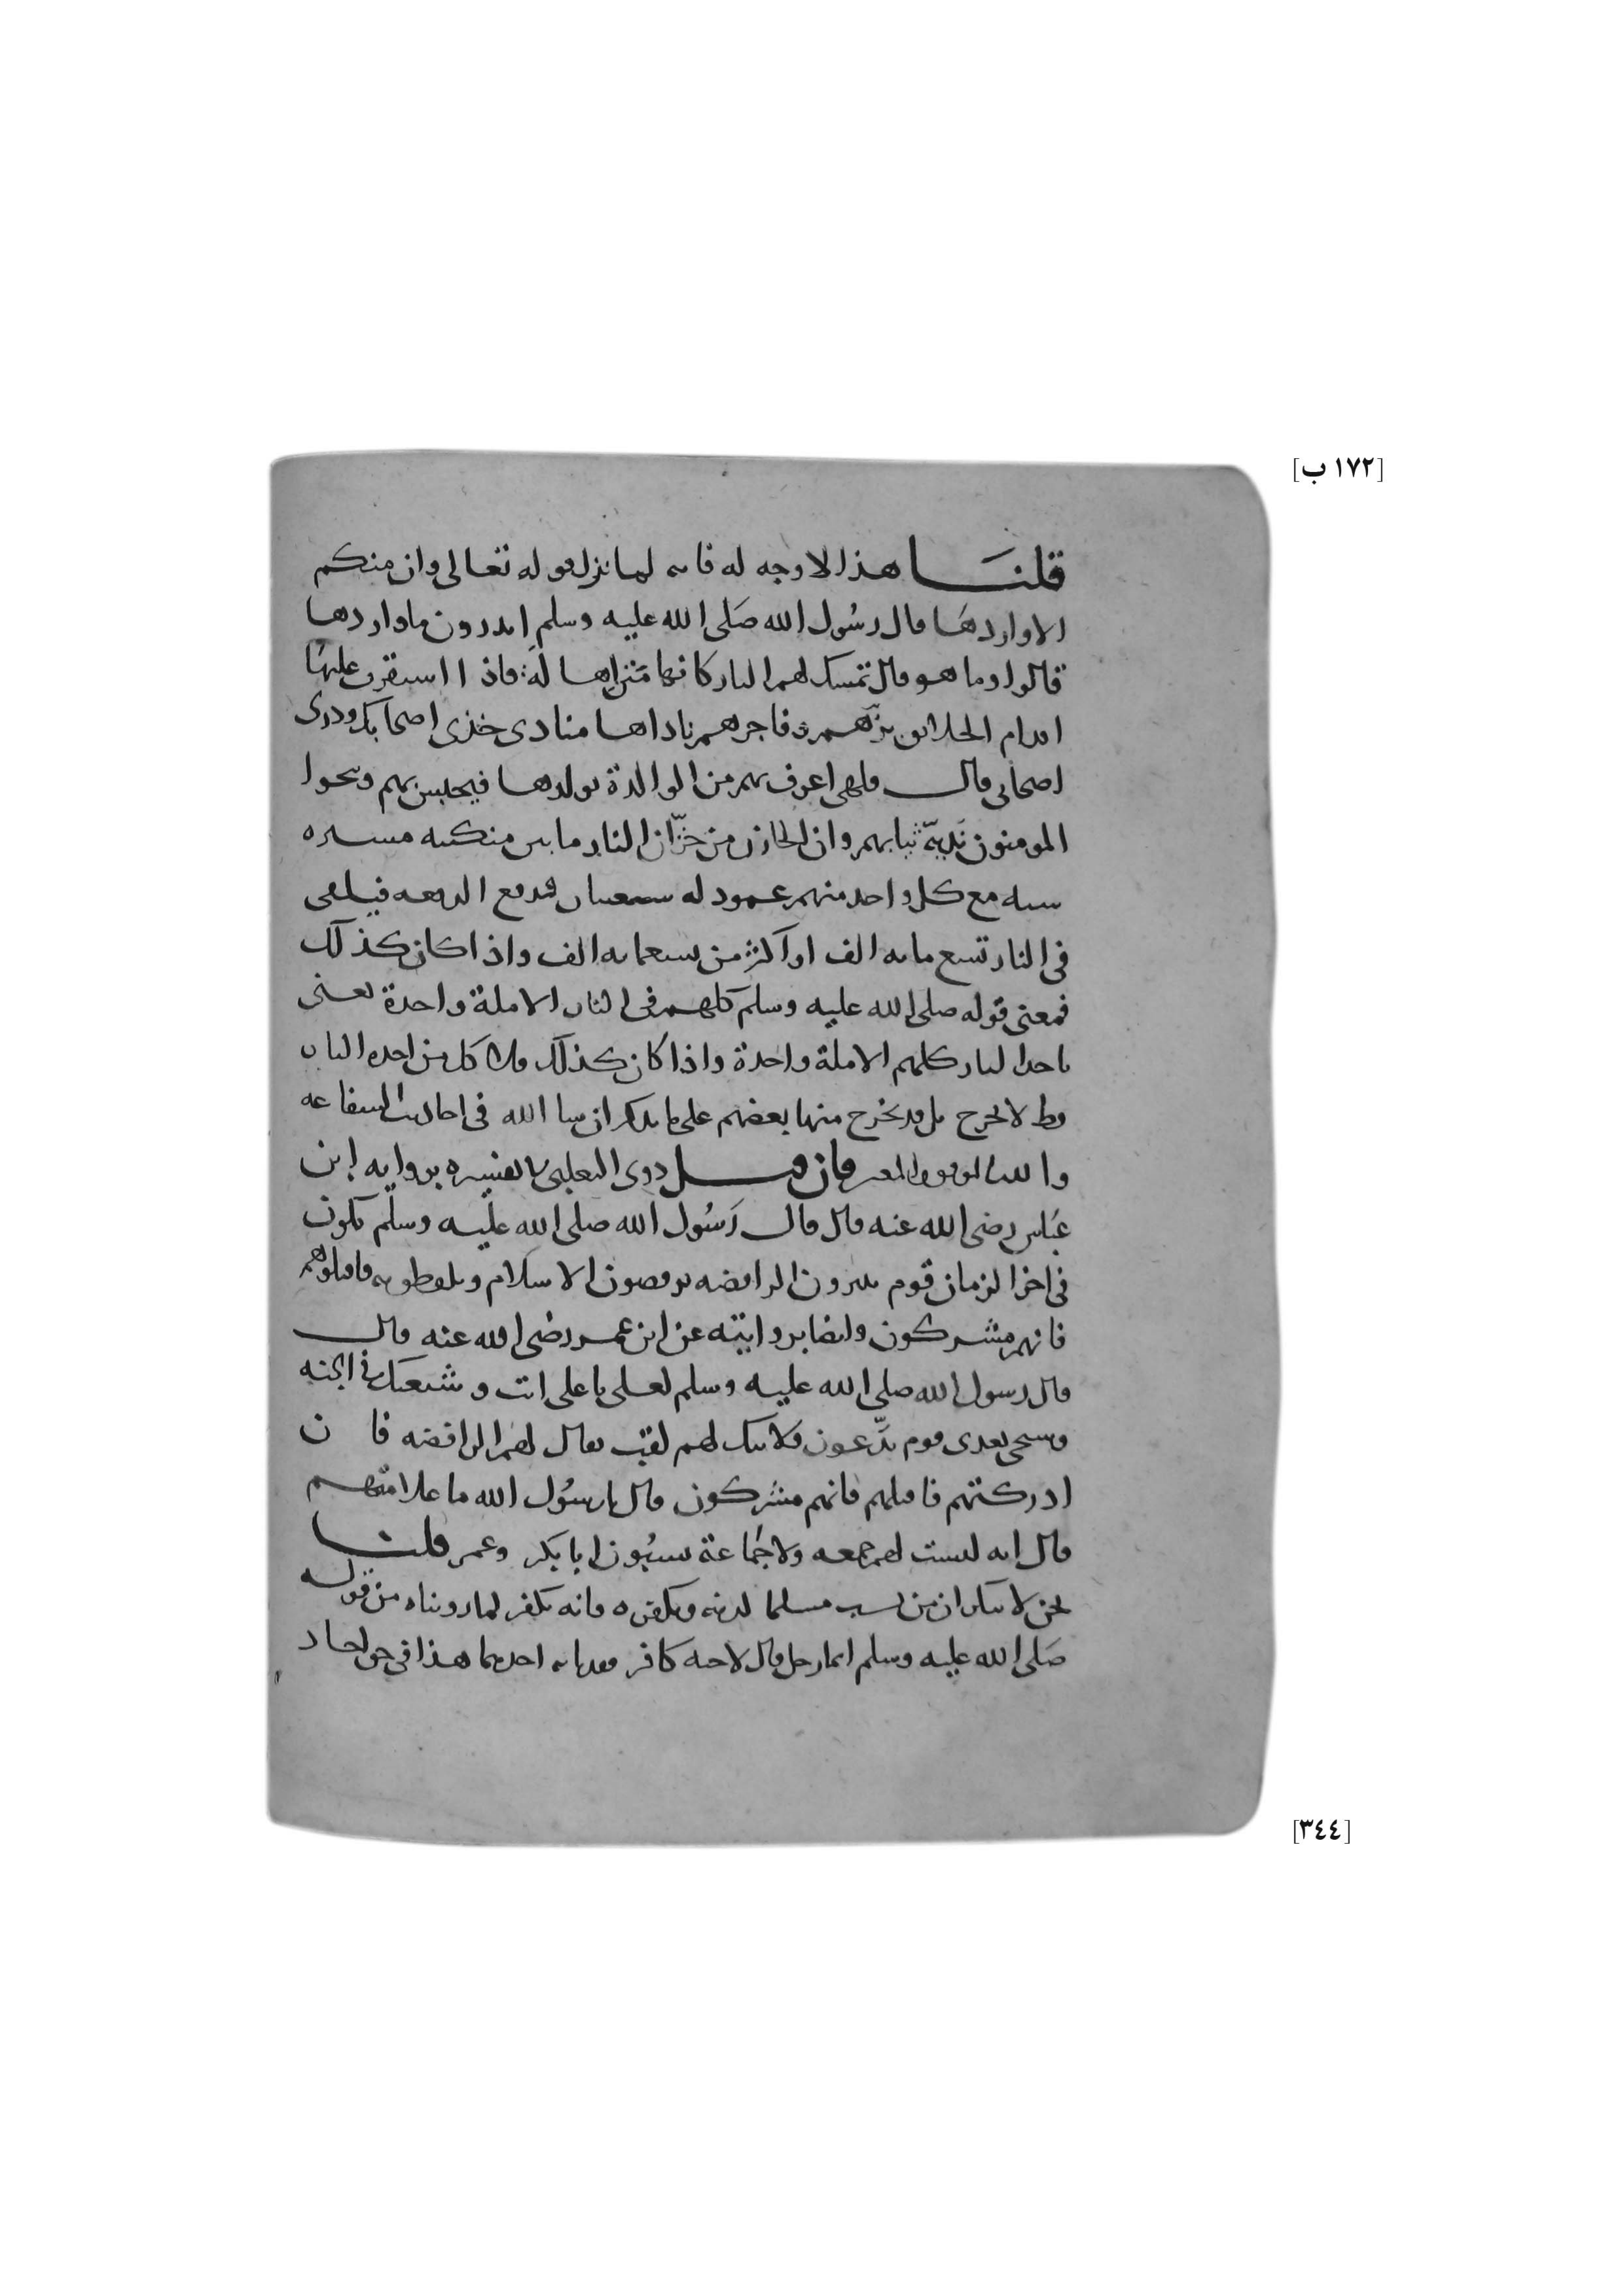 [١٧٢ ب]
قلنا هذا لا وجه له فانه لما نزل قوله تعالى وان منكم
الا واردها قال رسول الله صلى الله عليه وسلم اتدرون ما واردها
قالوا وما هو قال تمسك لهم النار كانها متن اهالة فاذا استقرت عليها
اقدام الخلائق برهم وفاجرهم ناداها منادى خذى اصحابك وذرى
اصحابى قال فلهى اعرف بهم من الوالدة بولدها فيحبس بهم وينجوا
المومنون ندية ثيابهم وان الخازن من خزان النار ما بين منكبيه مسيرة
سنة مع كل واحد منهم عمود له شعبتان فيدفع الدفعة فيلقى
فى النار تسع مائة الف او اكثر من سبعمائة الف واذا كان كذلك
فمعنى قوله صلى الله عليه وسلم كلهم فى النار الا ملة واحدة يعنى
ياخذ النار كلهم الا ملة واحدة واذا كان كذلك فلا كل من اخذه النار
قط لا يخرج بل قد يخرج منها بعضهم على ما يذكر ان شا الله فى احاديث الشفاعة
والله الموفق والمعين فان قيل روى الثعلبى فى تفسيره بروايه ابن
عباس رضى الله عنه قال قال رسول الله صلى الله عليه وسلم يكون
فى اخر الزمان قوم ينبزون الرافضة يرفضون الاسلام ويلفظونه فاقتلوهم
فانهم مشركون وايضا بروايته عن ابن عمر رضى الله عنه قال
قال رسول الله صلى الله عليه وسلم لعلى يا على انت وشيعتك فى الجنة
وسيجى بعدى قوم يدعون ولايتك لهم لقب يقال لهم الرافضة فان
ادركتهم فاقتلهم فانهم مشركون قال يا رسول الله ما علامتهم
قال انه ليست لهم جمعة ولا جماعة يسبون ابا بكر وعمر قلنا
نحن لا ننكر ان من يسب مسلما لدينه ويكفره فانه يكفر لما رويناه من قوله
صلى الله عليه وسلم ايما رجل قال لاخيه كافر فقد باء به احدهما هذا فى حق احاد
[٣٤٤]